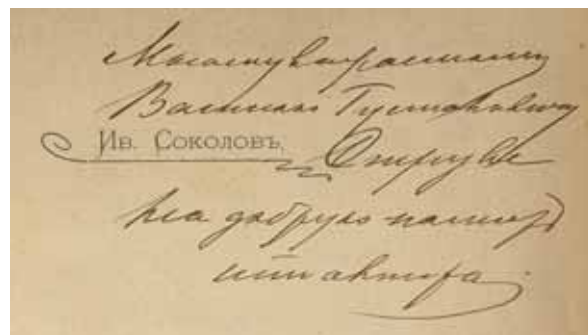 Многоуважаемому
Василию Густавовичу
Ив. Соколовъ, Струве
на добрую память
отъ автора.